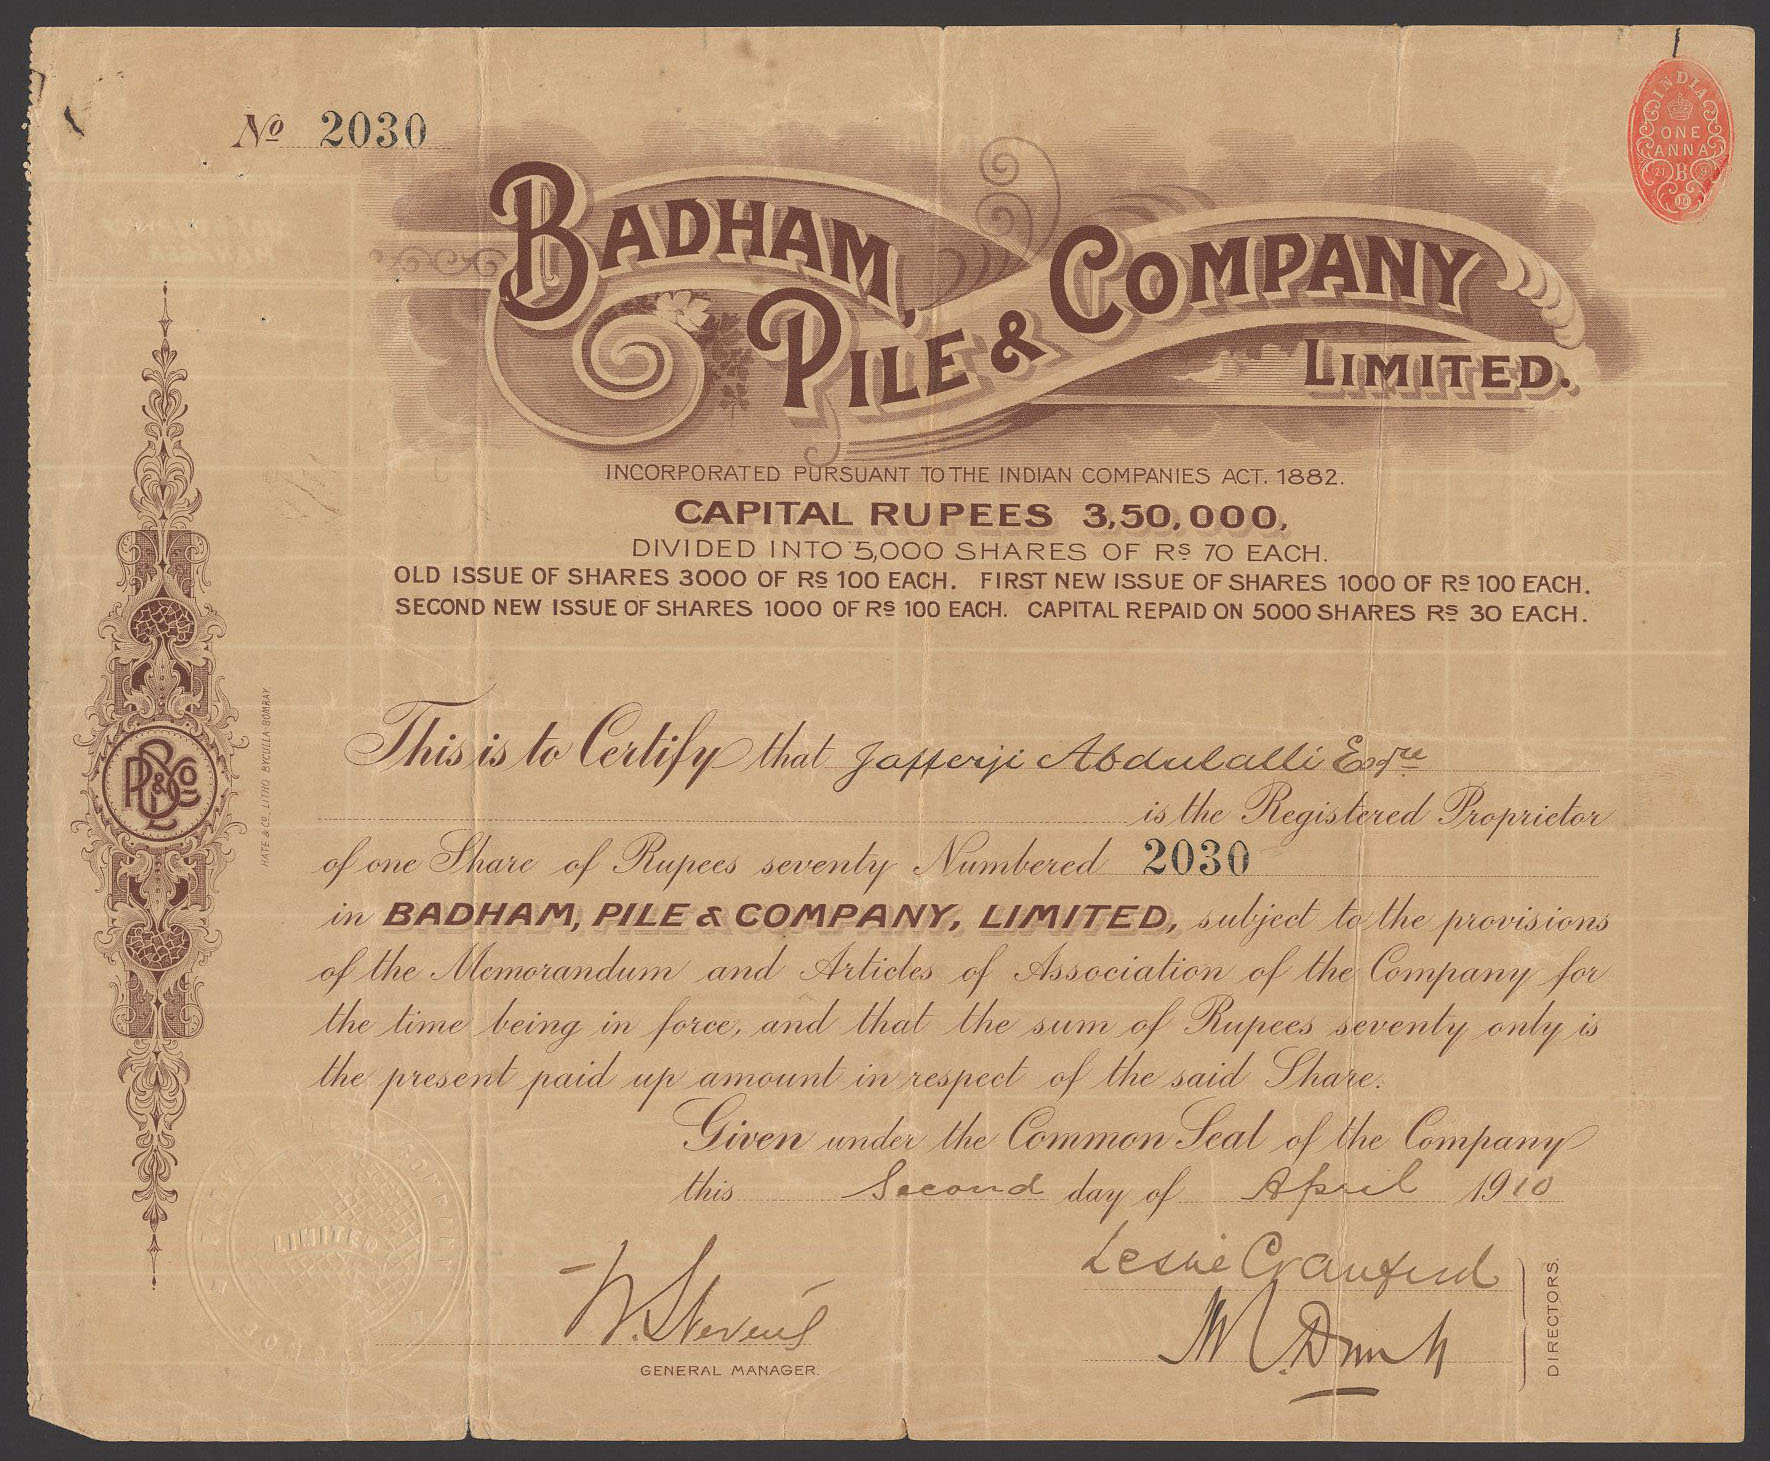 No 2030
INDIA
ONE
ANNA
BADHAM,
PILE & COMPANY
LIMITED.
INCORPORATED PURSUANT TO THE INDIAN COMPANIES ACT. 1882.
CAPITAL RUPEES 3,50,000,
DIVIDED INTO 5,000 SHARES OF Rs 70 EACH.
OLD ISSUE OF SHARES 3000 OF Rs 100 EACH. FIRST NEW ISSUE OF SHARES 1000 OF Rs 100 EACH.
SECOND NEW ISSUE OF SHARES 1000 OF Rs 100 EACH. CAPITAL REPAID ON 5000 SHARES Rs 30 EACH.
This is to Certify that Jafferji Abdulalli Esqre
is the Registered Proprietor
of one Share of Rupees seventy Numbered 2030
in BADHAM, PILE & COMPANY, LIMITED, subject to the provisions
of the Memorandum and Articles of Association of the Company for
the time being in force, and that the sum of Rupees seventy only is
the present paid up amount in respect of the said Share.
Given under the Common Seal of the Company
this Second day of April 1910
HATE & CO., LITHO. BYCULLA-BOMBAY.
LIMITED
Leslie Crawford
W. Stevens
GENERAL MANAGER.
DIRECTORS.